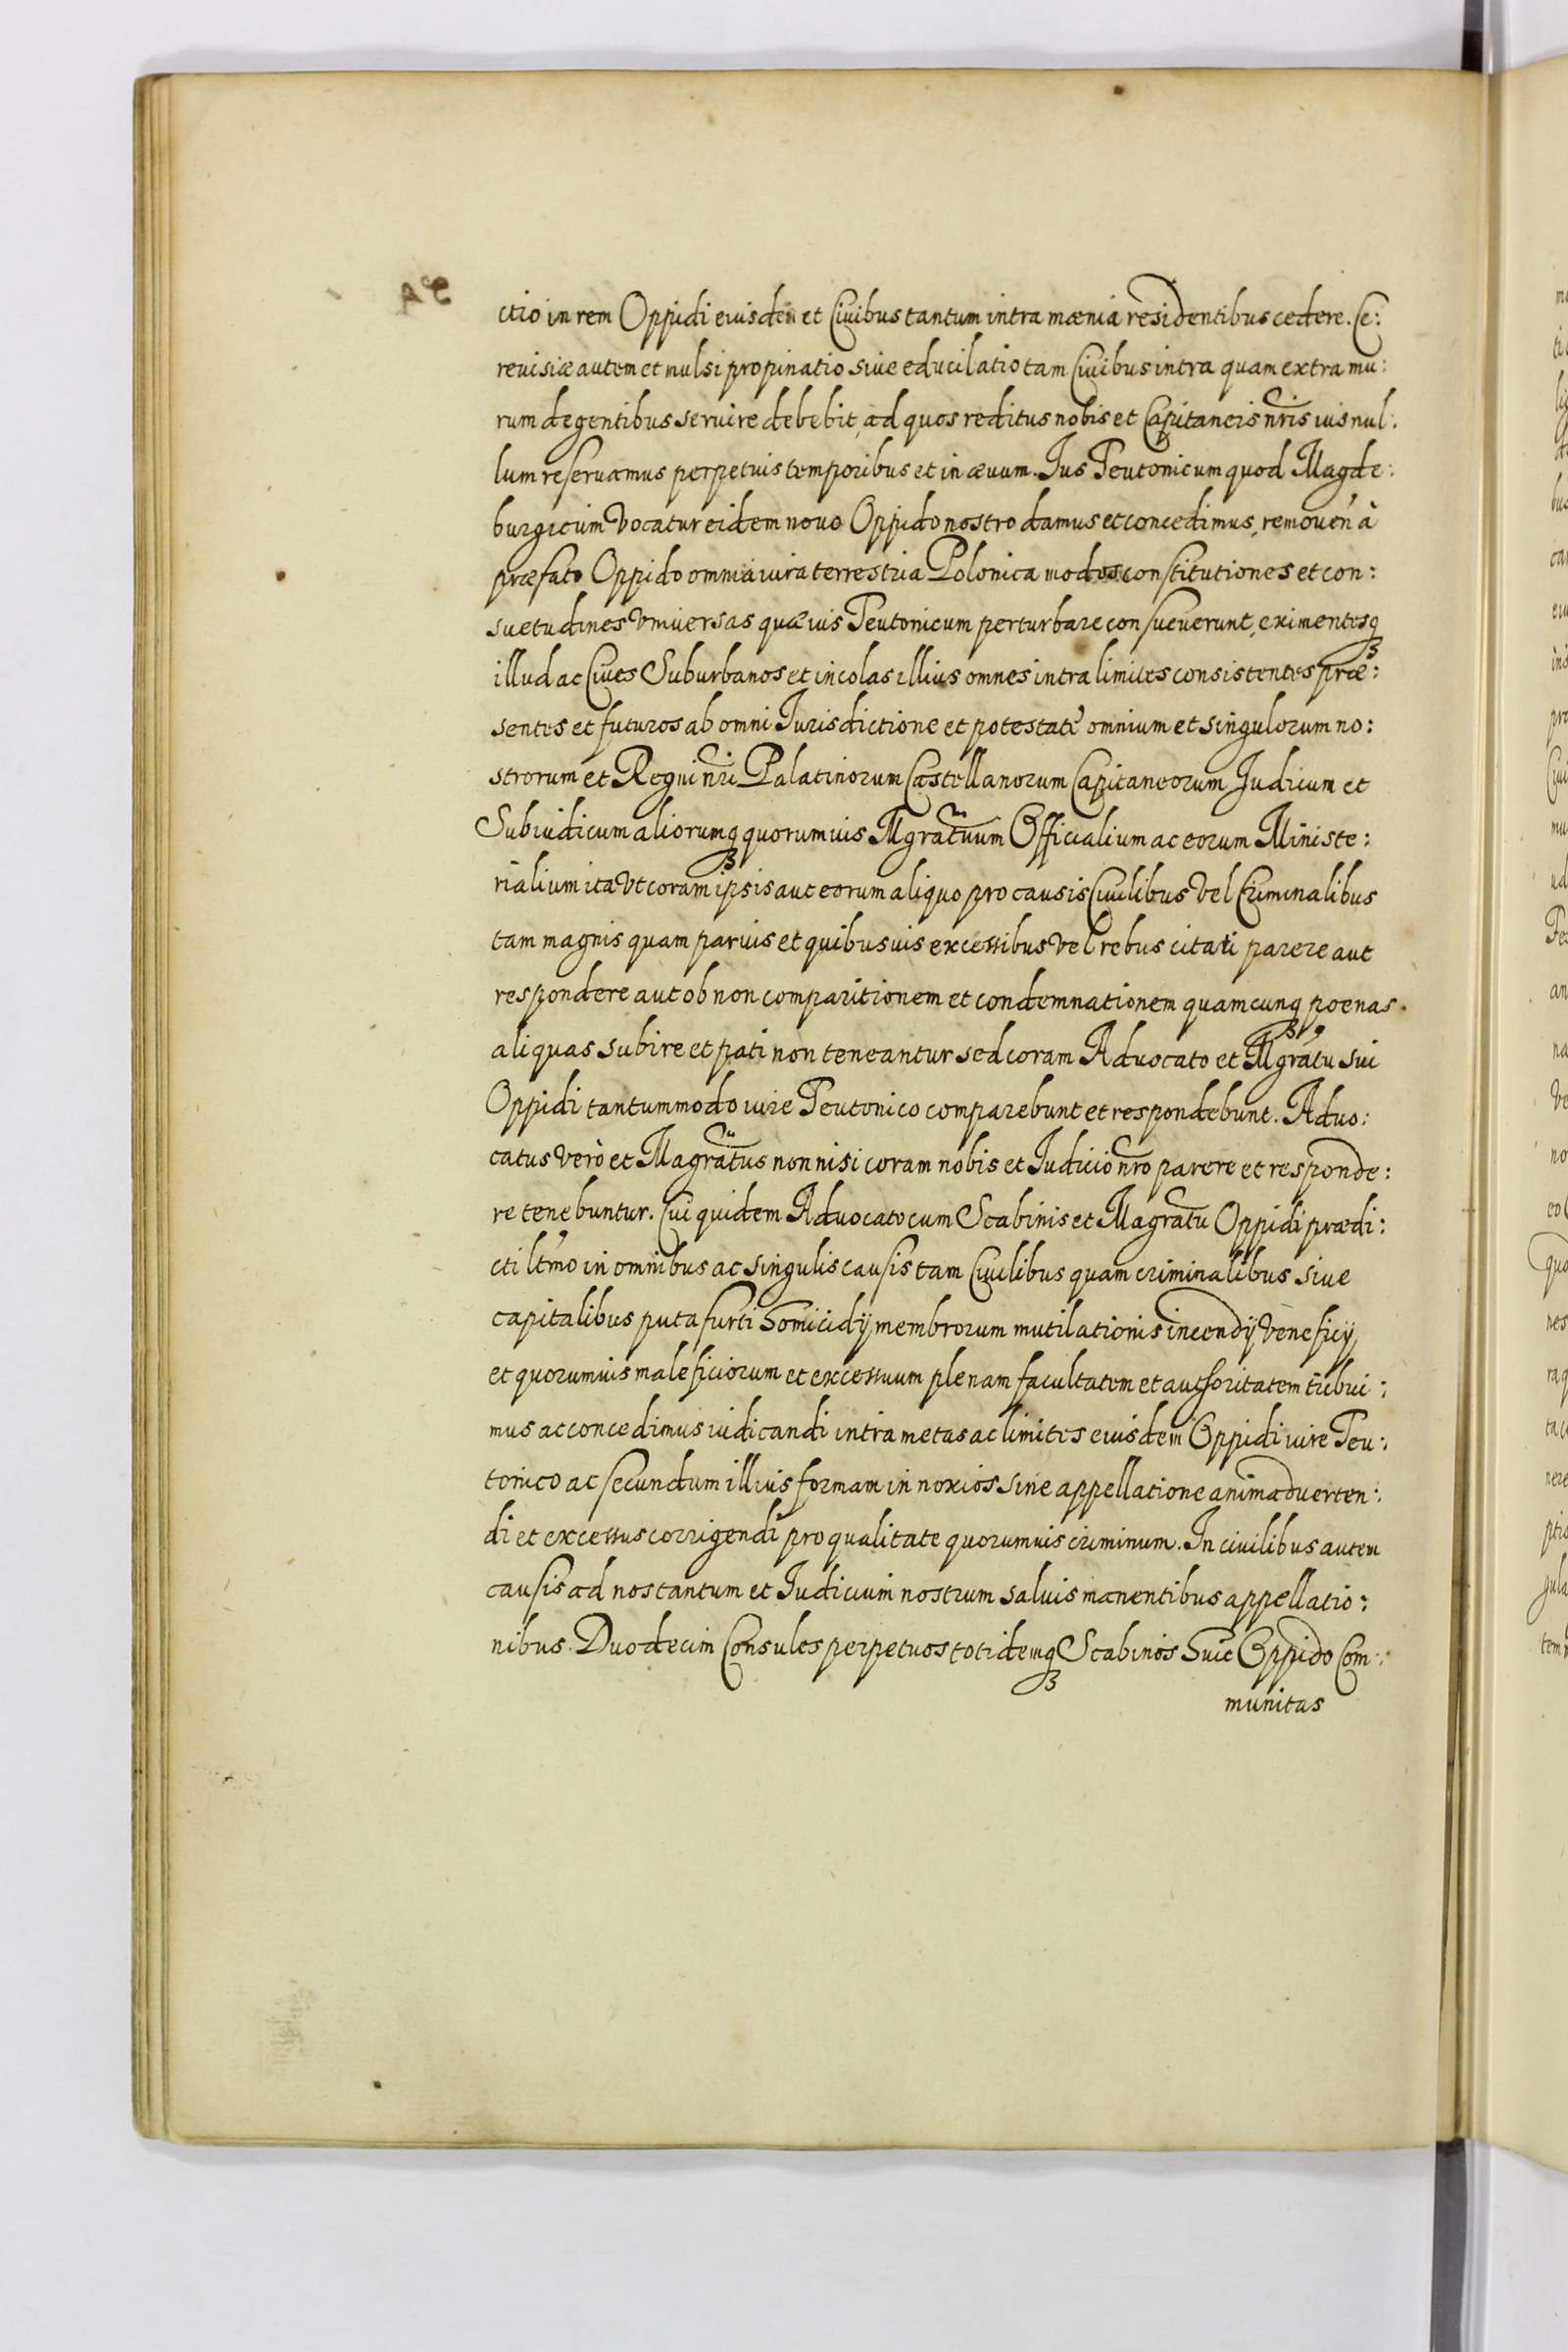 ctio in rem Oppidi eiusdem et Ciuibus tantum intra mænia residentibus cedere. Ce:
reuisiæ autem et mulsi propinatio siue educilatio tam Ciuibus intra quam extra mu:
rum degentibus seruire debebit, ad quos reditus nobis et Capitaneis nris ius nul:
lum reseruamus perpetuis temporibus et in æuum. Ius Teutonicum quod Magde:
burgicum Vocatur eidem nouo Oppido nostro damus et concedimus, remouen à
præfato Oppido omnia iura terrestria Polonica modos constitutiones et con:
suetudines Vniuersas quæ ius Teutonicum perturbare consueuerunt, eximentesq
illud ac Ciues Suburbanos et incolas illius omnes intra limites consistentes præ:
sentes et futuros ab omni Jurisdictione et potestate omnium et singulorum no:
strorum et Regni nri Palatinorum Castellanorum Capitaneorum Judicum et
Subiudicum aliorumq quorumuis Mgratuum Officialium ac eorum Ministe:
rialium ita Vt coram ipsis aut eorum aliquo pro causis Ciuilibus Vel Criminalibus
tam magnis quam paruis et quibusuis excessibus Vel rebus citati parere aut
respondere aut ob non comparitionem et condemnationem quamcunq poenas
aliquas subire et pati non teneantur sed coram Aduocato et Mgratu sui
Oppidi tantummodo iure Teutonico comparebunt et respondebunt. Aduo:
catus Verò et Magratus non nisi coram nobis et Iudicio nro parere et responde:
re tenebuntur. Cui quidem Aduocato cum Scabinis et Magratu Oppidi prædi:
cti ltmo in omnibus ac singulis causis tam Ciuilibus quam criminalibus siue
capitalibus puta furti homicidij membrorum mutilationis incendij Veneficij
et quorumuis maleficiorum et excessuum plenam facultatem et authoritatem tribui:
mus ac concedimus iudicandi intra metas ac limites eiusdem Oppidi iure Teu:
tonico ac secundum illius formam in noxios sine appellatione animaduerten:
di et excessus corrigendi pro qualitate quorumuis criminum. In ciuilibus autem
causis ad nos tantum et Iudicium nostrum saluis manentibus appellatio:
nibus. Duodecim Consules perpetuos totidemq Scabinos huic Oppido Com:
munitas